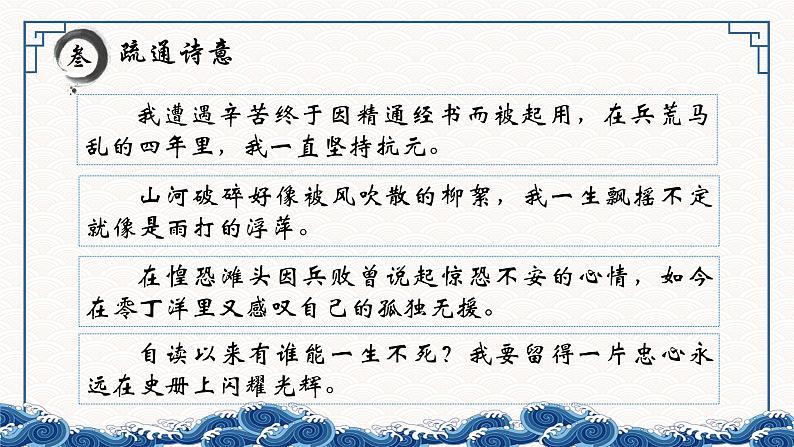 叁 疏通诗意
我遭遇辛苦终于因精通经书而被起用，在兵荒马
乱的四年里，我一直坚持抗元。
山河破碎好像被风吹散的柳絮，我一生飘摇不定
就像是雨打的浮萍。
在惶恐滩头因兵败曾说起惊恐不安的心情，如今
在零丁洋里又感叹自己的孤独无援。
自读以来有谁能一生不死？我要留得一片忠心永
远在史册上闪耀光辉。